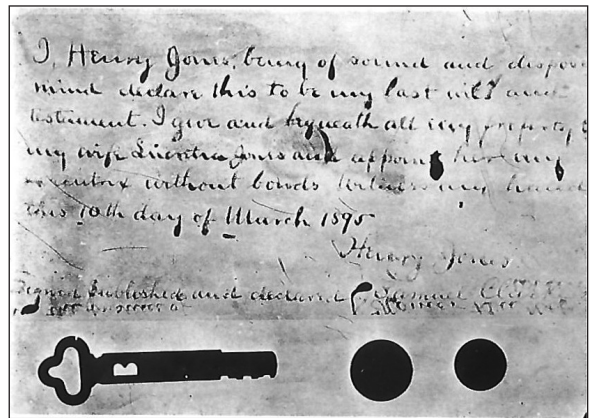 I, Henry Jones, being of sound and dispos
mind declare this to be my last will and
testament. I give and bequeath all my property,
my wife Jones and appoint her my
executrix without bonds Witness my hand
this 10th day of March 1895
Henry Jones
Signed Published and declared Samuel
in presence of
B